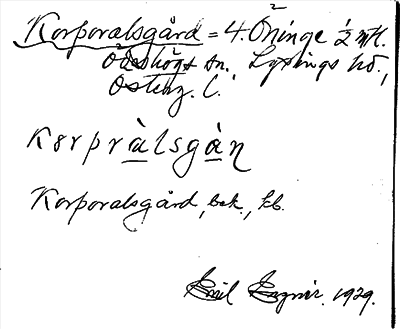 Korporalsgård = 4. Öninge ½ mtl.
Ödeshögs sn., Lysings hd.,
Österg. l.
Korpràlsgàɳ
Korporalsgård, bek., kb.
Emil 1929.